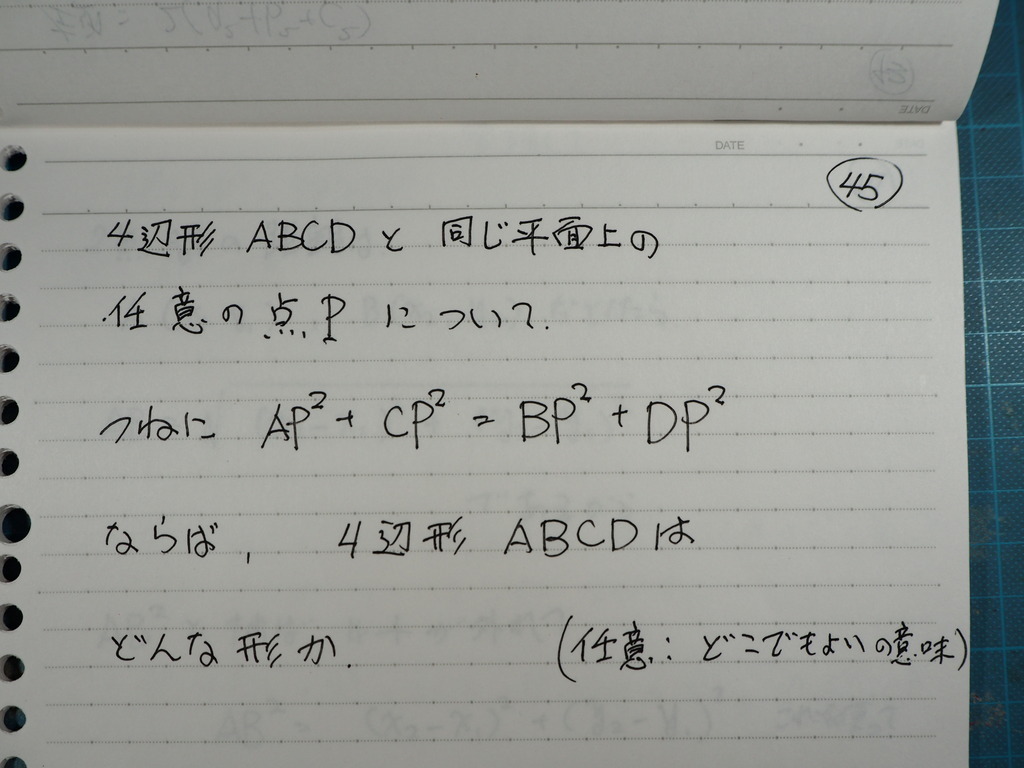 DATE
45
4辺形 ABCDと 同じ平面上の
任意の点Pについて.
つねに AP² + CP² = BP² + DP²
ならば, 4辺形 ABCDは
どんな形か. (任意: どこでもよいの意味)